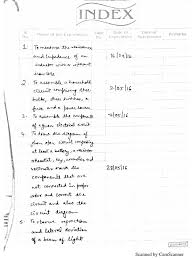 INDEX
1. To measure the resistance
and impedance of an
inductor with or without
iron core
16/04/16
2. To assemble a household
circuit comprising three
bulbs, three switches, a
fuse and a power source
2/05/16
3. To assemble the components
of a given electrical circuit
4. To draw the diagram of
given open circuit comprising
at least a battery, resistor,
rheostat, key, ammeter and
voltmeter. mark the
components that
are not connected in proper
order and correct the
circuit and also the
circuit diagram
5. To observe refraction
and lateral deviation
of a beam of light
Scanned by CamScanner